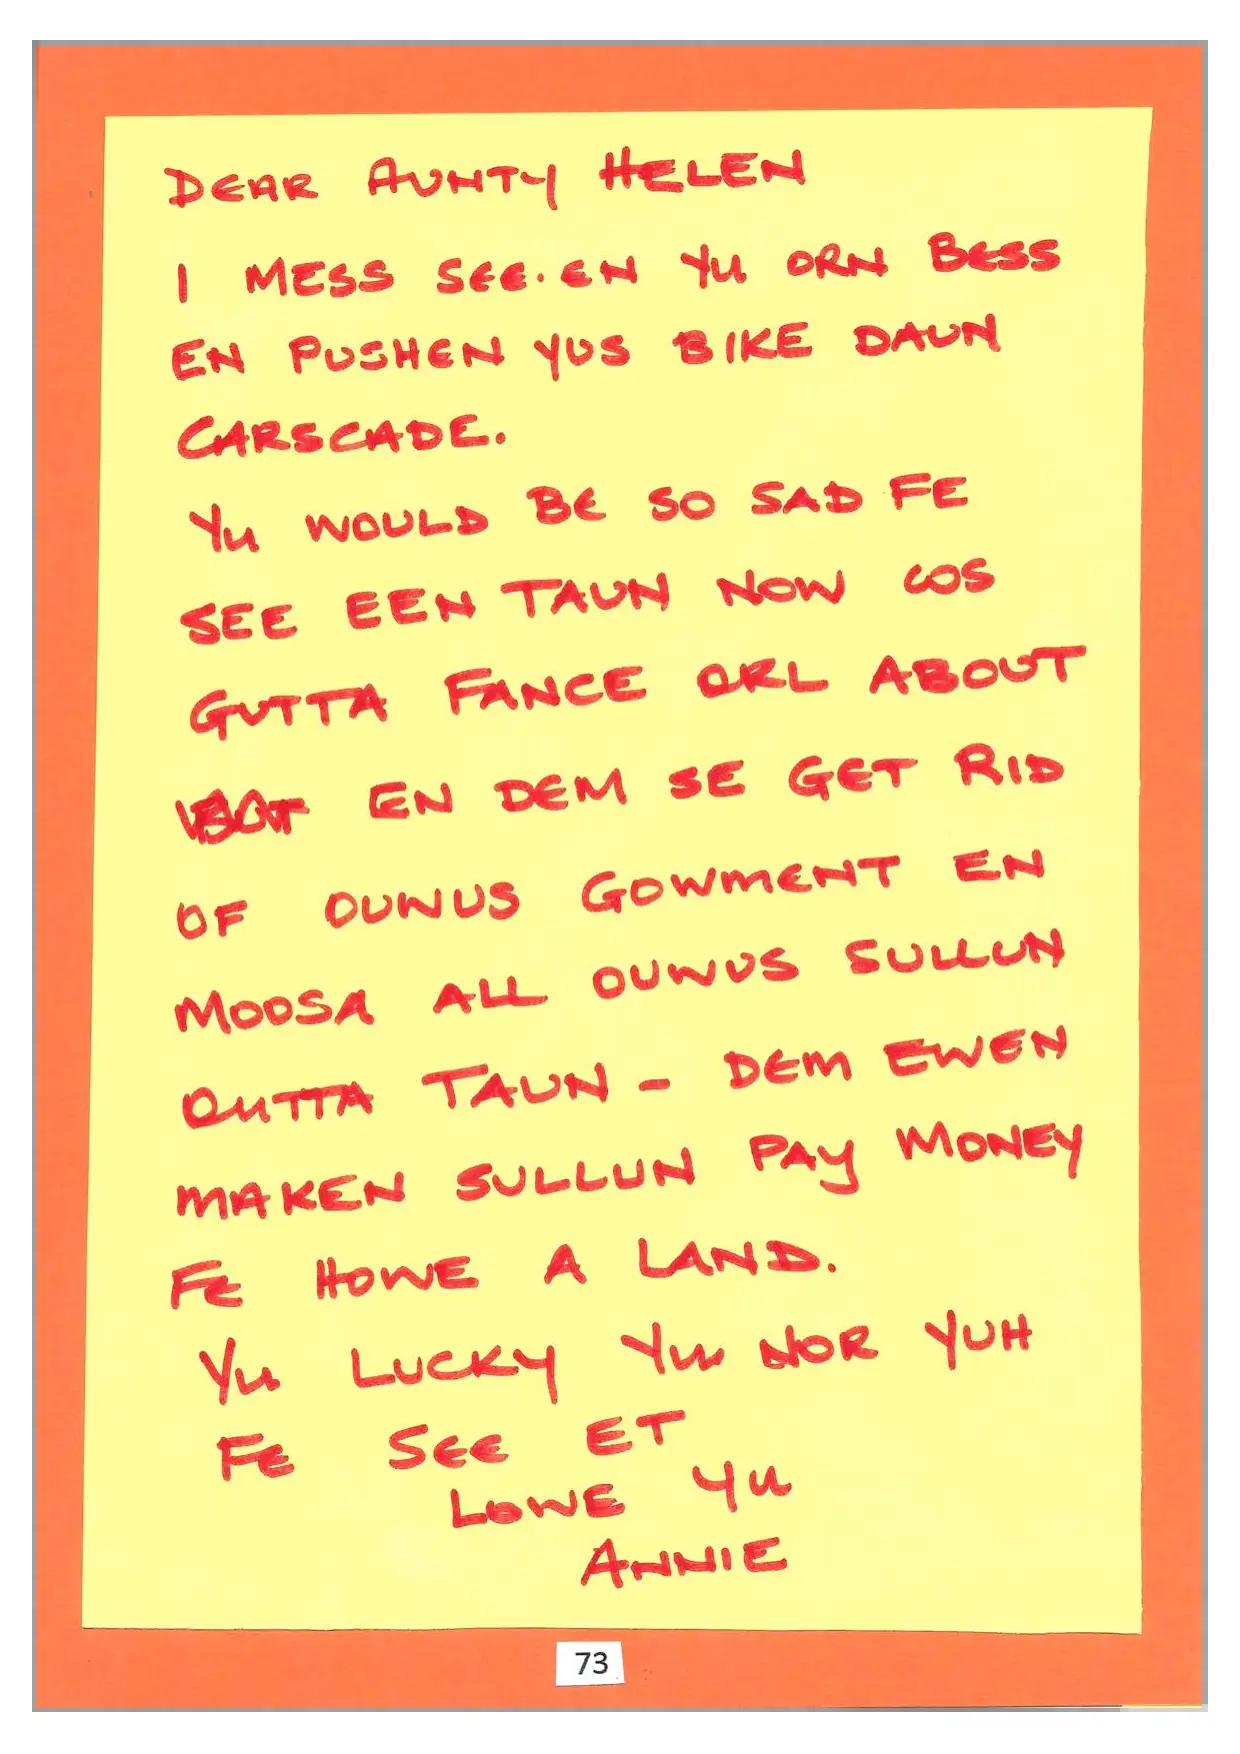 DEAR AUNTY HELEN
I MESS SEE.EN YU ORN BESS
EN PUSHEN YUS BIKE DAUN
CARSCADE.
YU WOULD BE SO SAD FE
SEE EEN TAUN NOW COS
GUTTA FANCE ORL ABOUT
EN DEM SE GET RID
OF OUWUS GOWMENT EN
MOOSA ALL OUWUS SULLUN
OUTTA TAUN - DEM EWEN
MAKEN SULLUN PAY MONEY
FE HOWE A LAND.
YU LUCKY YUU NOR YUH
FE SEE ET
LOWE YU
ANNIE
73